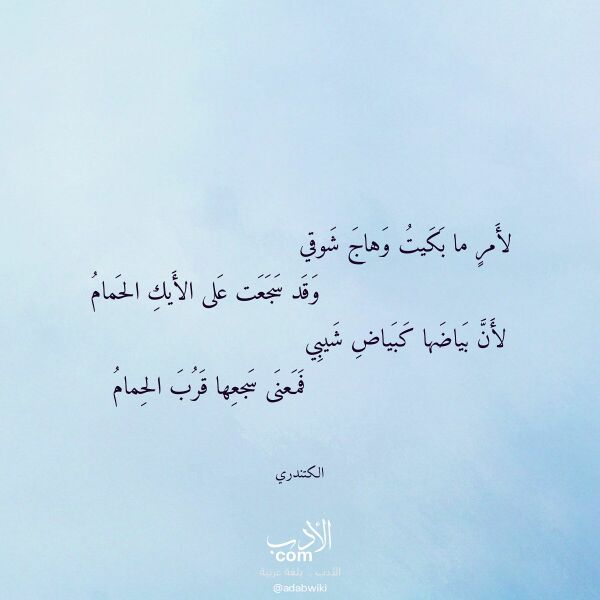 لأَمرٍ ما بَكَيتُ وَهاجَ شَوقي
وَقَد سَجَعَت عَلى الأَيكِ الحَمامُ
لأَنَّ بَياضَها كَبَياضِ شَيبِي
فَمَعنَى سَجعِها قَرُبَ الحِمامُ
الكتندري
الأدب
com
الأدب .. بلغة عربية
@adabwiki